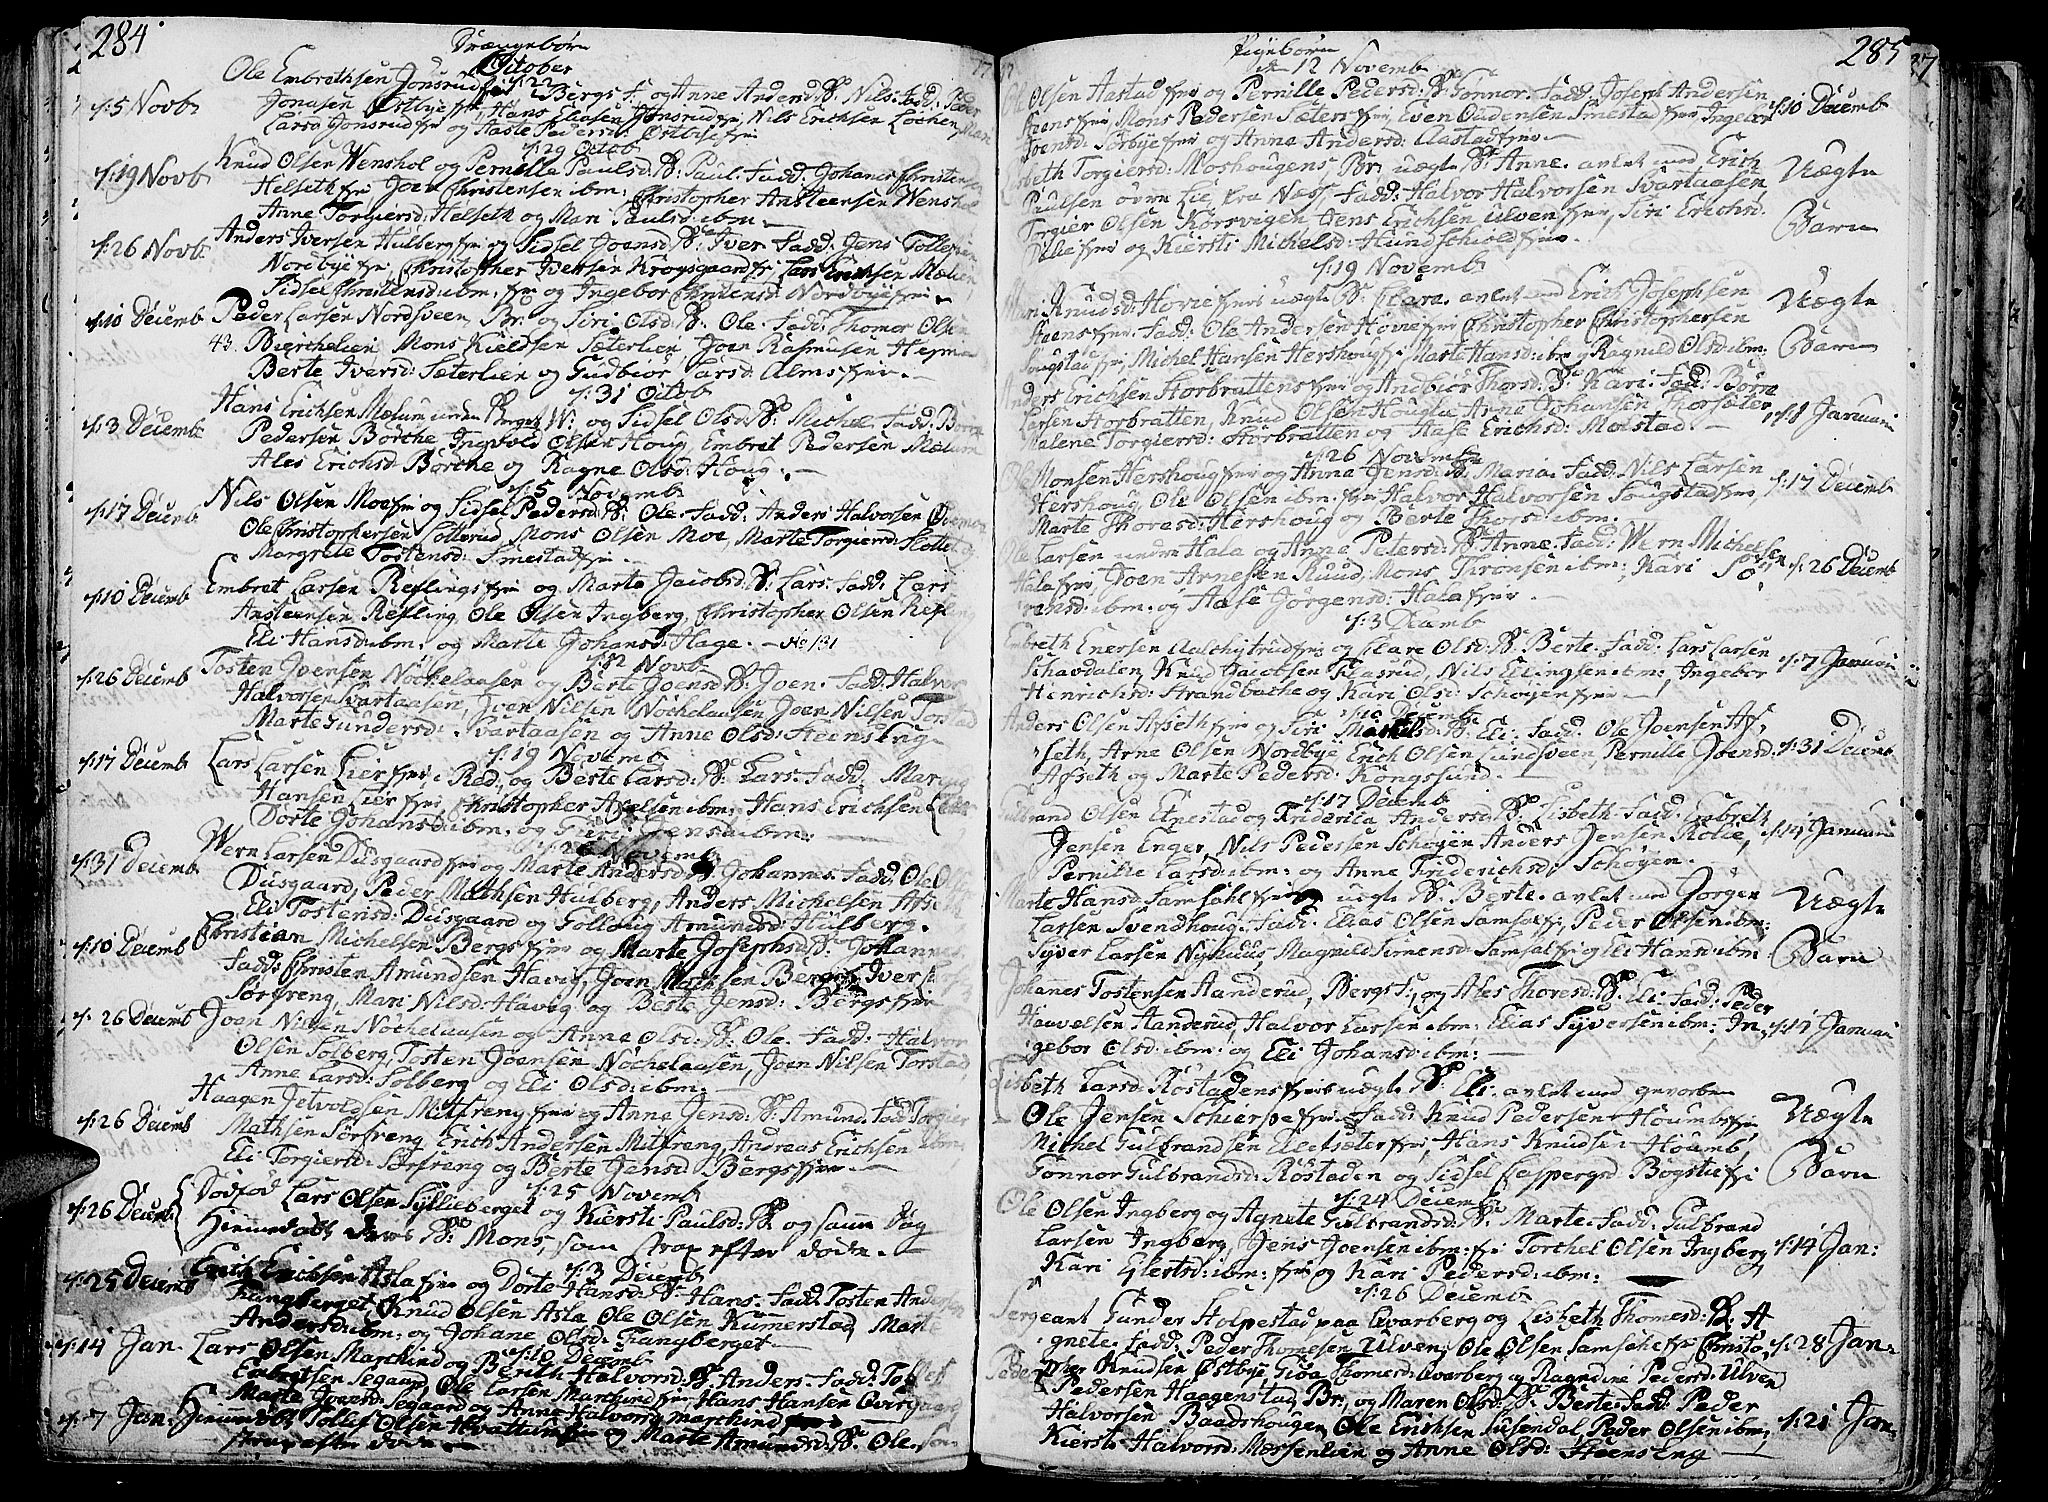 284
Drængebørn
October
d: 22
Ole Embrethsen Jonsrud Bergs f. og Anne Andersd: B: Nils. Fadd: Peder
d: 5 Novb
Jonasen Østbye fr, Hans Eliasen Jonsrud fr, Nils Erichsen Lochen, Mari
Larsd Jonsrud fr og Aaste Pedersd: Østbye fr
d: 29 Octob
d: 19 Novb
Knud Olsen Wenshol og Pernille Paulsd: B: Paul. Fadd: Johanes Christensen
Helseth fr, Joen Christensen ibm: Christopher Ansteensen Wenshol
Anne Torgiersd: Helseth og Mari Paulsd: ibm.
d: 26 Novb
Anders Iversen Hulberg fr og Sidsel Joensd: B: Iver. Fadd: Jens Tollefsen
Nordbye fr, Christopher Iversen Krogsgaard fr, Lars Erichsen Mælum
Sidsel Christensd: ibm: fr og Ingebor Nordbye fr
d: 10 Decemb
Peder Larsen Nordsveen, Br: og Siri Olsd: B: Ole. Fadd: Thomas Olsen
43. Bierchelien Mons Kieldsen Sæterlien Joen Rasmusen
Berte Iversd: Sæterlien og Gudbior Larsd: Alms fr
d: 31 Octob
d: 3 Decemb
Hans Erichsen Mælum under Berget, W: og Sidsel Olsd: B: Michel. Fadd: Børre
Pedersen Børche Ingebold Olsen Houg, Embret Pedersen Mælum
Ales Erichsd: Børche og Ragne Olsd: Houg.
d: 5 Novemb
d: 17 Decemb
Nils Olsen Moe fr og Sidsel Pedersd: B: Ole. Fadd: Anders Halvorsen
Ole Christophersen Lotterud Mons Olsen Moe, Marte Torgiersd
Margrete Tostensd: Smestad fr
d: 10 Decemb
Embret Larsen Reflings fr og Marte Jacobsd B: Lars. Fadd: Lars
Ansteensen Refling Ole Olsen Ingberg, Christopher Olsen Refl
Eli Hansd: ibm: og Marte Johansd: Hage. No 131
d: 12 Novb
d: 26 Decemb
Tosten Joensen Nøchelaasen og Berte Joensd B: Joen. Fadd: Halvor
Halvorsen Svartaasen, Joen Nilsen Nøchelaasen Joen Nilsen Torstad
Marte Gundersd: Svartaasen og Anne Olsd: Steensing
d: 19 Novemb
d: 17 Decemb
Lars Larsen Lier fr, Rod, og Berte Larsd: B: Lars. Fadd:
Hansen Lier fr Christopher Axelsen ibm: Hans Erichsen
Dorte Johansd: ibm. og Siri Jensd ibm:
d: 26 Novemb
d: 31 Decemb
Wern Larsen Dusgaard fr og Marte Andersd B: Johannes. Fadd: Ole
Dusgaard, Peder Mathsen Hulberg, Anders Michelsen
Eli Tostensd: Dusgaard og Gollaug Amundsd: Hulberg.
d: 10 Decemb
Christian Michelsen Bergs fr og Marte Josephsd: B: Johannes,
Fadd: Christen Amundsen Havig, Joen Mathsen Berg fr Iver
Sørfreng, Mari Nilsd: Havig og Berte Jensd: Bergs fr
d: 26 Decemb
Joen Nilsen Nøchelaasen og Anne Olsd: B: Ole. Fadd: Halvor
Olsen Solberg, Tosten Joensen Nøchelaasen, Joen Nilsen Torstad
Anne Larsd: Solberg og Eli Olsd: ibm.
d: 26 Decemb
Haagen Jetvoldsen Mitfreng fr og Anne Jensd: B: Amund. Fadd: Torgier
Mathsen Sørfreng, Erich Andersen Mitfreng, Andreas Erichsen ibm
Eli Torgiersd: Sørfreng og Berte Jensd Bergs fr.
d: 25 Novemb
d: 26 Decemb
Dødfød Lars Olsen Syllieberget og Kiersti Paulsd: B og samme Dag
Hiemmedøbt B: Mons, som strax efter døde.
d: 3 Decemb
d: 25 Decemb
Erich Erichsen Asla fr og Dorte Hansd: B: Hans. Fadd. Tosten Andersen
Frangberget, Knud Olsen Asla Ole Olsen Kumerstad, Marte
Andersd: ibm: og Johane Olsd: Frangberget
d: 10 Decemb
d: 14 Jan.
Lars Olsen Marchind og Berith Halvorsd: B: Anders. Fadd:
Embretsen Segaard, Ole Larsen Marchind fr, Hans Hansen
Marte Joensd: Segaard og Anne Halvorsd Marchind
d: 7 Jan:
Hiemmedøbt Tollef Olsen Hvattum fr og Marte Amundsd: B: Ole. som
strax efter døde
285
Pigebørn
d: 12 Novemb
Olsen Aastad fr og Pernille Pedersd: B: Gonnor. Fadd: Joseph Andersen
d: 10 Decemb
Steens fr Mons Pedersen Sæter fr, Even Oudensen Smestad fr Ingebor
Svensd: Sørbye fr og Anne Andersd: Aastad fr
Lisbeth Torgiersd: Moshougens, Br: uægte B: Anne. avlet med Erich
Uægte Barn
Paulsen øvre Lie, fra Næss, Fadd: Halvor Halvorsen Svartaasen
Torgier Olsen Korsvigen, Jens Erichsen Ulven fr, Siri Erichsd.
Dille fr og Kiersti Michelsd: Hundschiold fr.
d: 19 Novemb
Mari Knudsd: Hovie fr uægte B: Clare. avlet med Erich Josephsen
Uægte Barn
Steens fr Fadd: Ole Andersen Hovie fr Christopher Christophersen
Sougstad fr, Michel Hansen Hershoug fr, Marte Hansd: ibm og Ragnild Olsd ibm:
Anders Erichsen Storbrattens fr og Andbior Thorsd: B: Kari. Fadd: Børre
d: 8 Januari
Larsen Storbratten, Knud Olsen Hougli Arne Johansen Thorsæter
Malene Torgiersd: Storbratten og Aase Erichsd: Moestad
d: 26 Novemb
Ole Monsen Hershoug fr og Anna Jensd: B: Maria. Fadd: Nils Larsen
d: 17 Decemb
Hershoug Ole Olsen ibm: fr Halvor Halvorsen Sougstad fr,
Marte Thoresd: Hershoug og Berte Thorsd: ibm.
Ole Larsen under Hala og Anne Petersd: B: Anne. Fadd: Wern Michelsen
d: 26 Decemb
Hala fr, Joen Arnesen Ruud, Mons Simonsen ibm: Kari Sø¬
rensd: ibm. og Aase Jørgensd: Hala fr.
d: 3 Decemb
Embreth Enersen Aalchytrud fr og Clare Olsd: B: Berte. Fadd: Lars Larsen
d: 7 Januari
Schavdalen, Knud Jacobsen Flasrud, Nils Ellingsen ibm:, Ingebor
Henrichsd: Strandbache og Kari Olsd: Schøyen fr
d: 10 Decemb
Anders Olsen Afseth fr og Siri Michelsd: B: Eli. Fadd: Ole Joensen Af¬
d: 31 Decemb
seth, Arne Olsen Nordbye Erich Olsen Lundsveen, Pernille Joensd
Afseth og Marte Pedersd: Kongslund.
d: 17 Decemb
Gulbrand Olsen Elnestad og Friderica Andersd B: Lisbeth. Fadd: Embreth
d: 14 Januari
Jensen Enger, Nils Pedersen Schøyen Anders Jensen Kolie,
Pernille Larsd: ibm: og Anne Friderichsd: Schøyen.
Marte Hansd: Samsahl fr uægte B: Berte. avlet med Jørgen
Uægte Barn
Larsen Svendhoug. Fadd: Elias Olsen Samsal fr, Peder Olsen ibm:
Syver Larsen Nyhuus, Magnild Simensd: Samsal fr og Eli Hansd ibm.
Johanes Tostensen Aanderud, Bergs f:, og Ales Thoresd: B: Eli. Fadd: Peder
d: 14 Januari
Haavelsen Aanderud, Halvor Larsen ibm: Elias Syversen ibm: In¬
gebor Olsd: ibm: og Eli Johansd: ibm:
Lisbeth Larsd: Røstadens fr uægte B: Eli. avlet med gevorben
Uægte Barn
Ole Jensen Schierpe fr. Fadd: Knud Pedersen Houmb fr,
Michel Gulbrandsen Elletsæter fr, Hans Knudsen Houmb,
Gonnor Gulbrandsd: Røstaden og Sidsel Caspersd Bøgstie fr
d: 24 Decemb
Ole Olsen Ingberg og Agnete Gulbrandsd: B: Marte. Fadd: Gulbrand
d: 14 Jan:
Larsen Ingberg, Jens Joensen ibm: fr Torchel Olsen Ingberg
Kari Glestsd: ibm: fr og Kari Pedersd: ibm:
d: 26 Decemb
Sergeant Gunder Holpestad paa Evarberg og Lisbeth Thomesd: B: A¬
gnete. Fadd: Peder Thomesen Ulven, Ole Olsen Samsahl fr Christo¬
d: 28 Jan:
pher Knudsen Østbye, Giøa Thomesd: Evarberg og Ragndine Pedersd: Ulven
Peder Pedersen Haagenstad, Br:, og Maren Olsd: B: Berte. Fadd: Peder
Halvorsen Baadshougen, Ole Erichsen Lusendal, Peder Olsen ibm,
d: 21 Jan.
Kiersti Halvorsd: Mærsenlien og Anne Olsd: Steens Eng